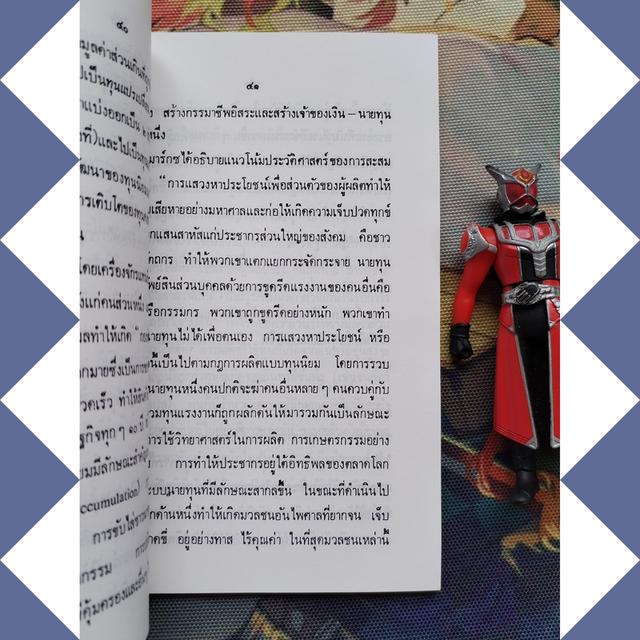 ๔๐
มูลค่าส่วนเกินที่
ไปเป็นทุนแปรเปลี่ยน
แบ่งออกเป็น ๒
ที่)และไปเป็น
ฒนาของทุนนิยม
การเติบโตของทุน
น
โดยเครื่องจักร
งแก่คนส่วนหนึ่ง
ลทำให้เกิด
กมายซึ่งเป็นการ
วดเร็ว ทำให้
ฐกิจทุก ๆ ๑๐ ปี
ยมมีลักษณะสำคัญ
accumulation)
การขับไล่ชาว
กรรม
คุ้มครองและ
๔๑
สร้างกรรมาชีพอิสระและสร้างเจ้าของเงิน – นายทุน
หนึ่ง
มาร์กซได้อธิบายแนวโน้มประวัติศาสตร์ของการสะสม
"การแสวงหาประโยชน์เพื่อส่วนตัวของผู้ผลิตทำให้
เสียหายอย่างมหาศาลและก่อให้เกิดความเจ็บปวดทุกข์
แสนสาหัสแก่ประชากรส่วนใหญ่ของสังคม คือชาว
ทำให้พวกเขาแตกแยกกระจัดกระจาย นายทุน
พย์สินส่วนบุคคลด้วยการขูดรีดแรงงานของคนอื่นคือ
รือกรรมกร พวกเขาถูกขูดรีดอย่างหนัก พวกเขาทำ
นายทุนไม่ได้เพื่อตนเอง การแสวงหาประโยชน์ หรือ
นี้เป็นไปตามกฎการผลิตแบบทุนนิยม โดยการรวบ
นายทุนหนึ่งคนปกติจะฆ่าคนอื่นหลาย ๆ คนควบคู่กับ
วมทุนแรงงานก็ถูกผลักดันให้มารวมกันเป็นลักษณะ
ารใช้วิทยาศาสตร์ในการผลิต การเกษตรกรรมอย่าง
การทำให้ประชากรอยู่ใต้อิทธิพลของตลาดโลก
ะบบนายทุนที่มีลักษณะสากลขึ้น ในขณะที่ดำเนินไป
กด้านหนึ่งทำให้เกิดมวลชนอันไพศาลที่ยากจน เจ็บ
ดขี่ อยู่อย่างทาส ไร้คุณค่า ในที่สุดมวลชนเหล่านี้